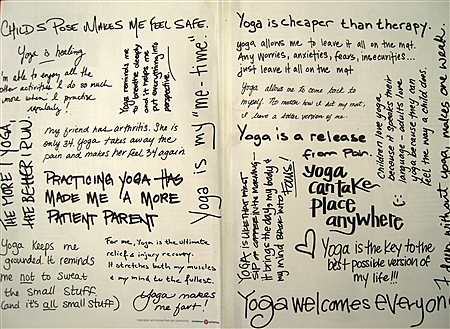 CHILD'S POSE MAKES ME FEEL SAFE.
Yoga is healing
I'm able to enjoy all the
other activities I do so much
more when I practice
regularly!
Yoga reminds me
to breathe deeply
and it helps me
put everything into
perspective.
Yoga is my "me-time".
THE MORE I YOGA
THE BETTER I RUN.
my friend has arthritis. She is
only 34. Yoga takes away the
pain and makes her feel 34 again
PRACTICING YOGA HAS
MADE ME A MORE
PATIENT PARENT
Yoga keeps me
grounded. It reminds
me not to sweat
the small stuff
(and it's all small stuff)
For me, Yoga is the ultimate
relief & injury recovery.
It stretches both my muscles
& my mind to the fullest.
Yoga makes
me fart!
Yoga is cheaper than therapy.
yoga allows me to leave it all on the mat.
Any worries, anxieties, fears, insecurities...
just leave it all on the mat
Yoga allows me to come back to
myself. No matter how I hit my mat,
I leave a better version of me.
Yoga is a release
from Pain
YOGA IS LIKE THAT FIRST
SIP OF COFFEE IN THE MORNING –
it brings the day, my body &
my mind BACK INTO
FOCUS!
yoga
can take
place
anywhere
Children love yoga
because it speaks their
language – adults love
yoga because they can
feel the way a child does.
without yoga, makes one weak.
Yoga is the key to the
best possible version of
my life!!!
Yoga welcomes everyone